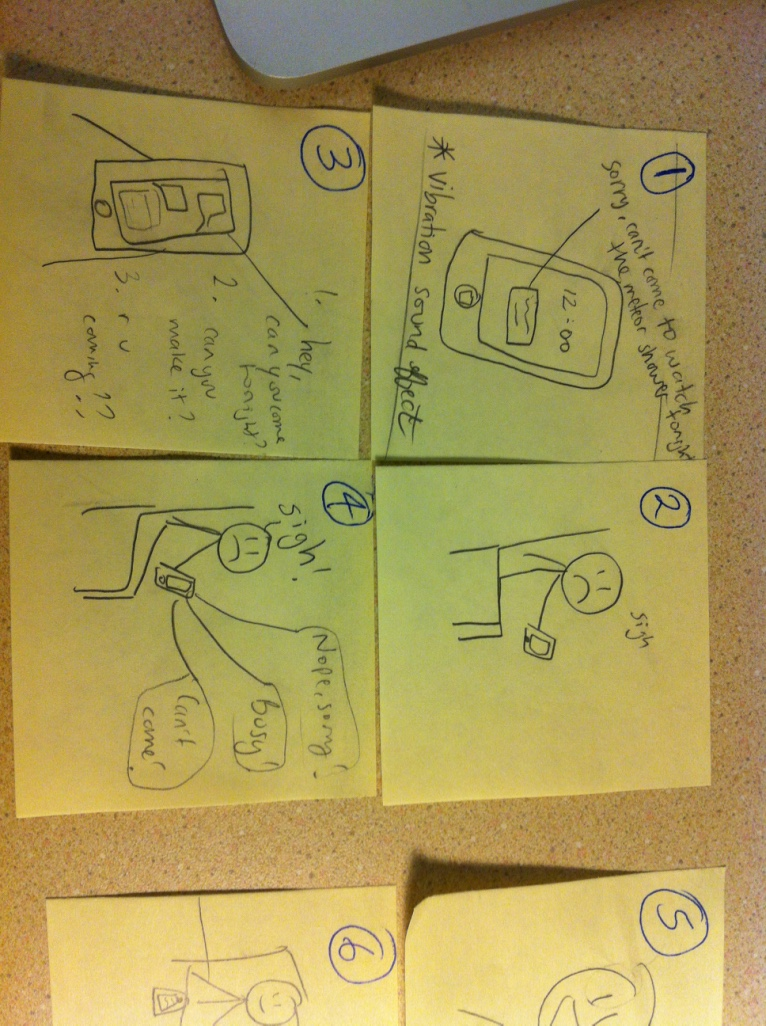 1
sorry, can't come to watch
the meteor shower tonight
12:00
* vibration sound effect
2
sigh
3
1. hey,
can you come
tonight?
2. can you
make it?
3. r u
coming??
4
sigh!
Nope, sorry!
Busy!
Can't
come!
5
6